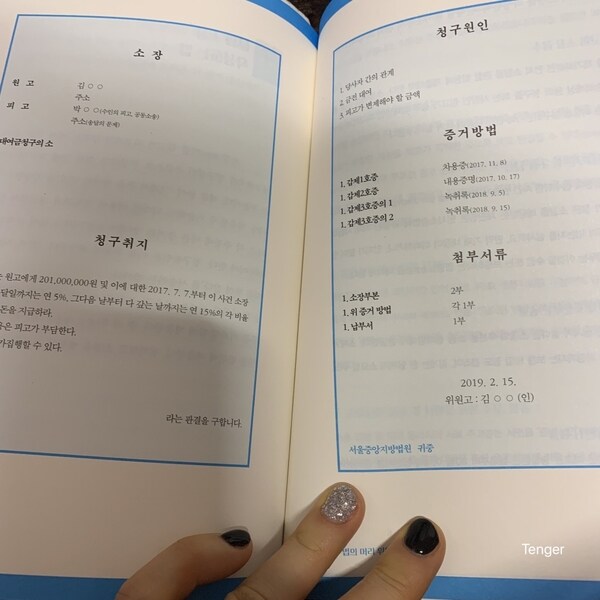 소 장
원 고 김 ○ ○
주소
피 고 박 ○ ○(수인의 피고, 공동소송)
주소(송달의 문제)
대여금청구의 소
청구취지
원고에게 201,000,000원 및 이에 대한 2017. 7. 7.부터 이 사건 소장
달일까지는 연 5%, 그다음 날부터 다 갚는 날까지는 연 15%의 각 비율
돈을 지급하라.
은 피고가 부담한다.
가집행할 수 있다.
라는 판결을 구합니다.
청구원인
1. 당사자 간의 관계
2. 금전 대여
3. 피고가 변제해야 할 금액
증거방법
1. 갑제1호증 차용증(2017. 11. 8)
1. 갑제2호증 내용증명(2017. 10. 17)
1. 갑제3호증의 1 녹취록(2018. 9. 5)
1. 갑제3호증의 2 녹취록(2018. 9. 15)
첨부서류
1. 소장부본 2부
1. 위 증거 방법 각 1부
1. 납부서 1부
2019. 2. 15.
위원고 : 김 ○ ○ (인)
서울중앙지방법원 귀중
법의 머리
Tenger